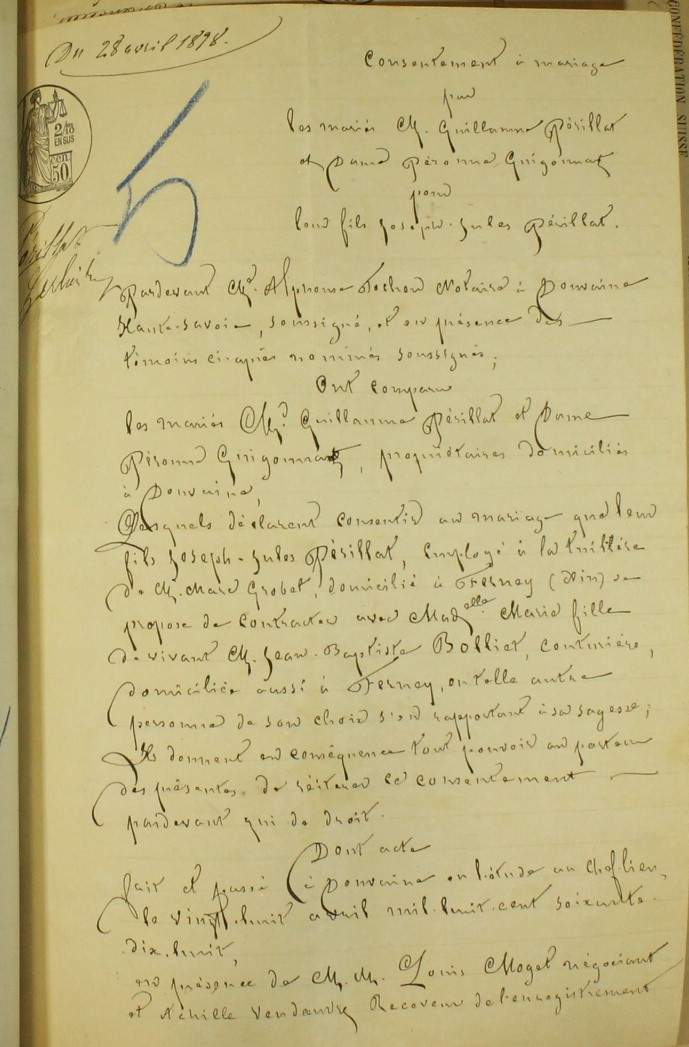 Du 28 avril 1878.
CONFÉDÉRATION SUISSE
Consentement à mariage
par
les mariés M. Guillaume Périllat
et Dame Péronne Guigonnat
pour
leur fils Joseph-Jules Périllat.
2/10
EN SUS
50
CEN
5
Pardevant Me. Alphonse Tochon Notaire à Douvaine
Haute-Savoie, soussigné, et en présence des
témoins ci-après nommés soussignés;
Ont comparu
les mariés Mr. Guillaume Périllat et Dame
Péronne Guigonnat, propriétaires domiciliés
à Douvaine,
Lesquels déclarent consentir au mariage que leur
fils Joseph-Jules Périllat, Employé à la
de M. Marc Grobet, domicilié à Ferney (Ain) se
propose de contracter avec Madelle. Marie fille
de vivant M. Jean-Baptiste Bolliet, couturière,
domiciliée aussi à Ferney, ou telle autre
personne de son choix s'en rapportant à sa sagesse;
Ils donnent en conséquence tout pouvoir au porteur
des présentes de réitérer ce consentement
pardevant qui de droit.
Dont acte
fait et passé à Douvaine en l'étude au chef-lieu,
le vingt-huit avril mil-huit-cent soixante-
dix-huit,
en présence de M. M. Louis Moget négociant
et Achille Receveur de l'enregistrement